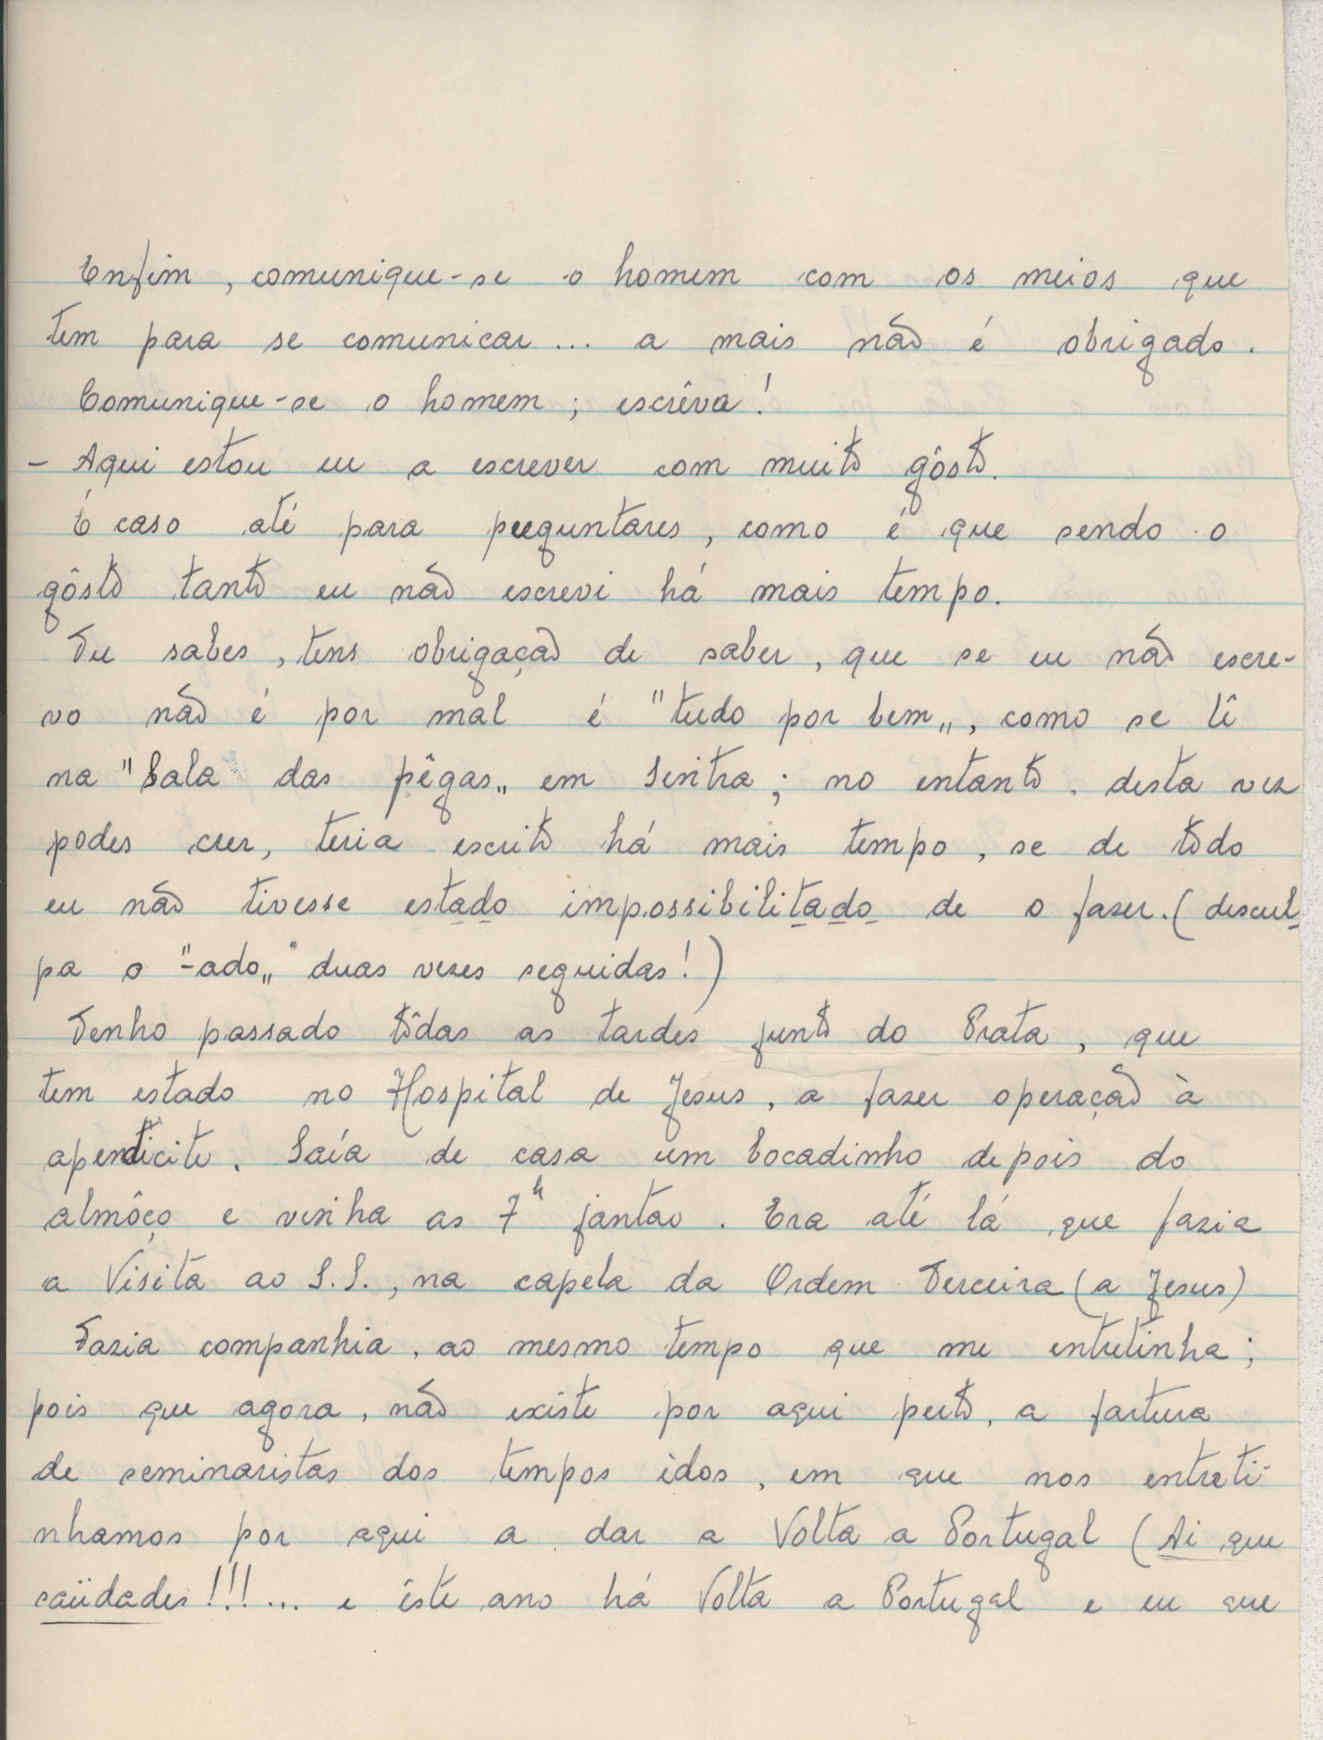 Enfim, comunique-se o homem com os meios que
tem para se comunicar... a mais não é obrigado.
Comunique-se o homem; escrêva!
- Aqui estou eu a escrever com muito gôsto.
É caso até para perguntares, como é que sendo o
gôsto tanto eu não escrevi há mais tempo.
Tu sabes, tens obrigação de saber, que se eu não escre-
vo não é por mal é "tudo por bem„, como se lê
na "Sala das pêgas„ em Sintra; no entanto, desta vez
podes crer, teria escrito há mais tempo, se de todo
eu não tivesse estado impossibilitado de o fazer. (descul-
pa o "-ado„ duas vezes seguidas!)
Tenho passado tôdas as tardes junto do Prata, que
tem estado no Hospital de Jesus, a fazer operação à
apendicite. Saía de casa um bocadinho depois do
almôço e vinha as 7h jantar. Era até lá que fazia
a Visita ao S.S., na capela da Ordem Terceira (a Jesus)
Fazia companhia, ao mesmo tempo que me entretinha;
pois que agora, não existe por aqui perto, a fartura
de seminaristas dos tempos idos, em que nos entreti-
nhamos por aqui a dar a Volta a Portugal (Ai que
saüdades!!!... e êste ano há Volta a Portugal e eu que